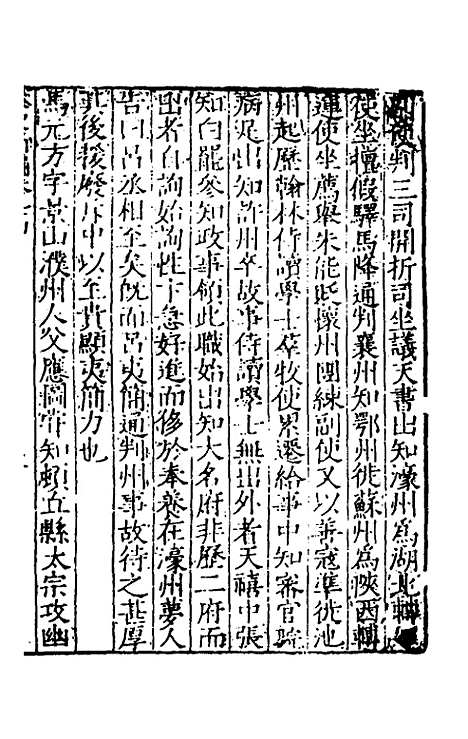 使判三司開折司坐議天書出知濠州爲湖北轉
使坐擅假驛馬降通判襄州知鄂州徙蘇州爲陝西轉
運使坐薦舉朱能貶懷州團練副使又以善寇準徙池
州起歷翰林侍讀學士羣牧使累遷給事中知審官院
病足出知許州卒故事侍讀學士無出外者天禧中張
知白罷參知政事領此職始出知大名府非歷二府而
出者自詢始詢性卞急好進而侈於奉養在濠州夢人
告曰呂丞相至矣旣而呂夷簡通判州事故待之甚厚
其後援廢斥中以至貴顯夷簡力也
馬元方字景山濮州人父應圖嘗知頓丘縣太宗攻幽